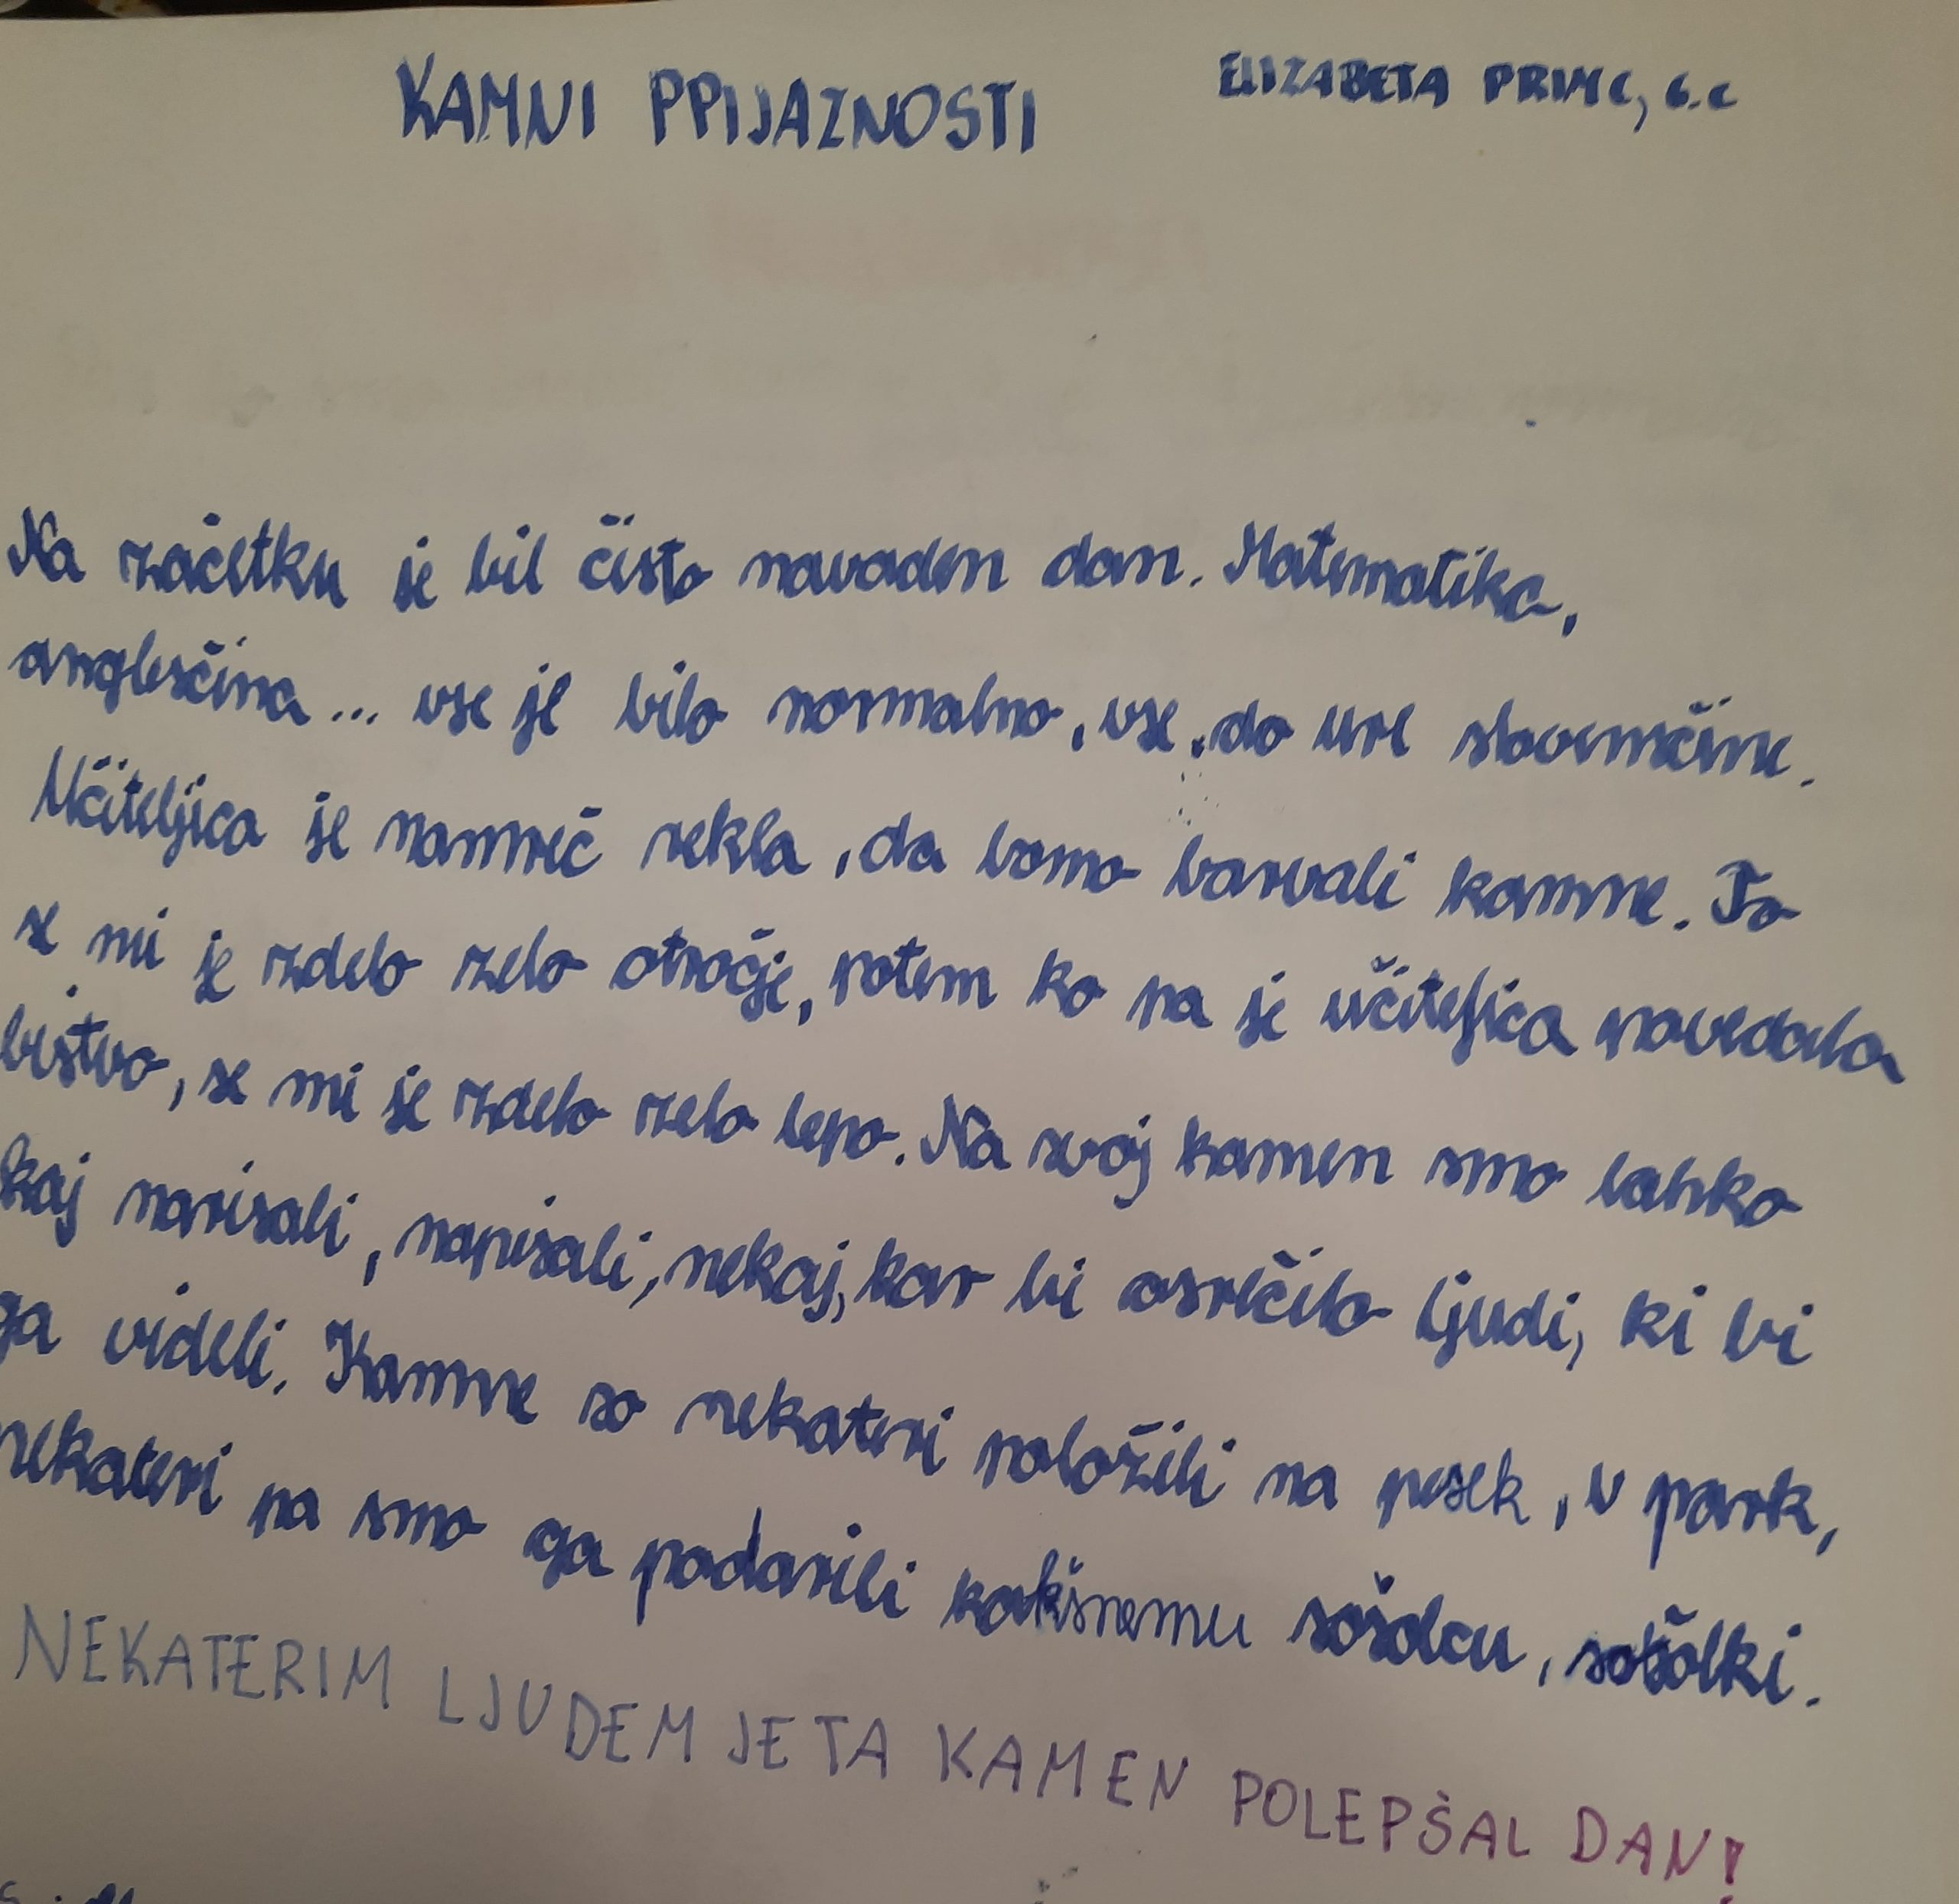 KAMNI PPIJAZNOSTI
ELIZABETA PRIMC, 6.c
Na začetku je bil čisto navaden dan. Matematika,
angleščina... vse je bilo normalno, vse do ure slovenščine.
Učiteljica je namreč rekla, da bomo barvali kamne. To
se mi je zdelo zelo otročje, potem ko pa je učiteljica povedala
bistvo, se mi je zdelo zelo lepo. Na svoj kamen smo lahko
kaj narisali, napisali, nekaj, kar bi osrečilo ljudi, ki bi
ga videli. Kamne so nekateri položili na pesek, v park,
nekateri pa smo ga podarili kakšnemu sošolcu, sošolki.
NEKATERIM LJUDEM JE TA KAMEN POLEPŠAL DAN!